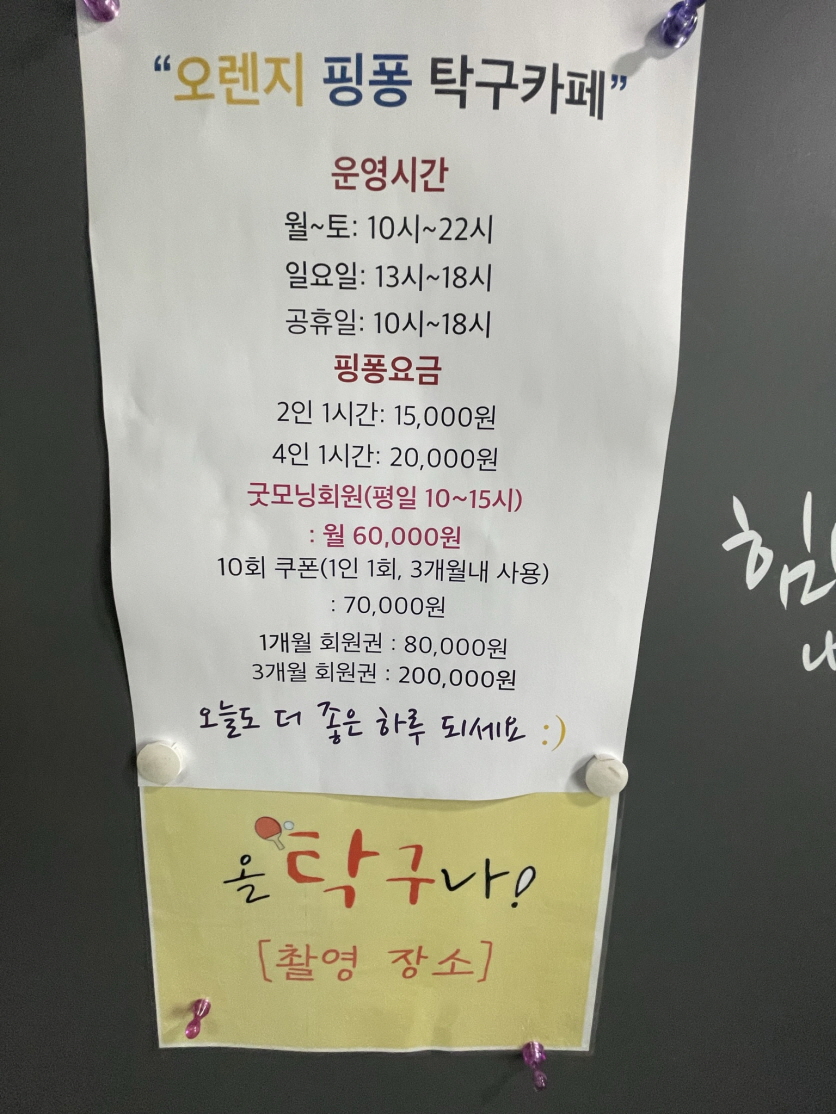 “오렌지 핑퐁 탁구카페”
운영시간
월~토: 10시~22시
일요일: 13시~18시
공휴일: 10시~18시
핑퐁요금
2인 1시간: 15,000원
4인 1시간: 20,000원
굿모닝회원(평일 10~15시)
: 월 60,000원
10회 쿠폰(1인 1회, 3개월내 사용)
: 70,000원
1개월 회원권 : 80,000원
3개월 회원권 : 200,000원
오늘도 더 좋은 하루 되세요 :)
올 탁구나!
[촬영 장소]